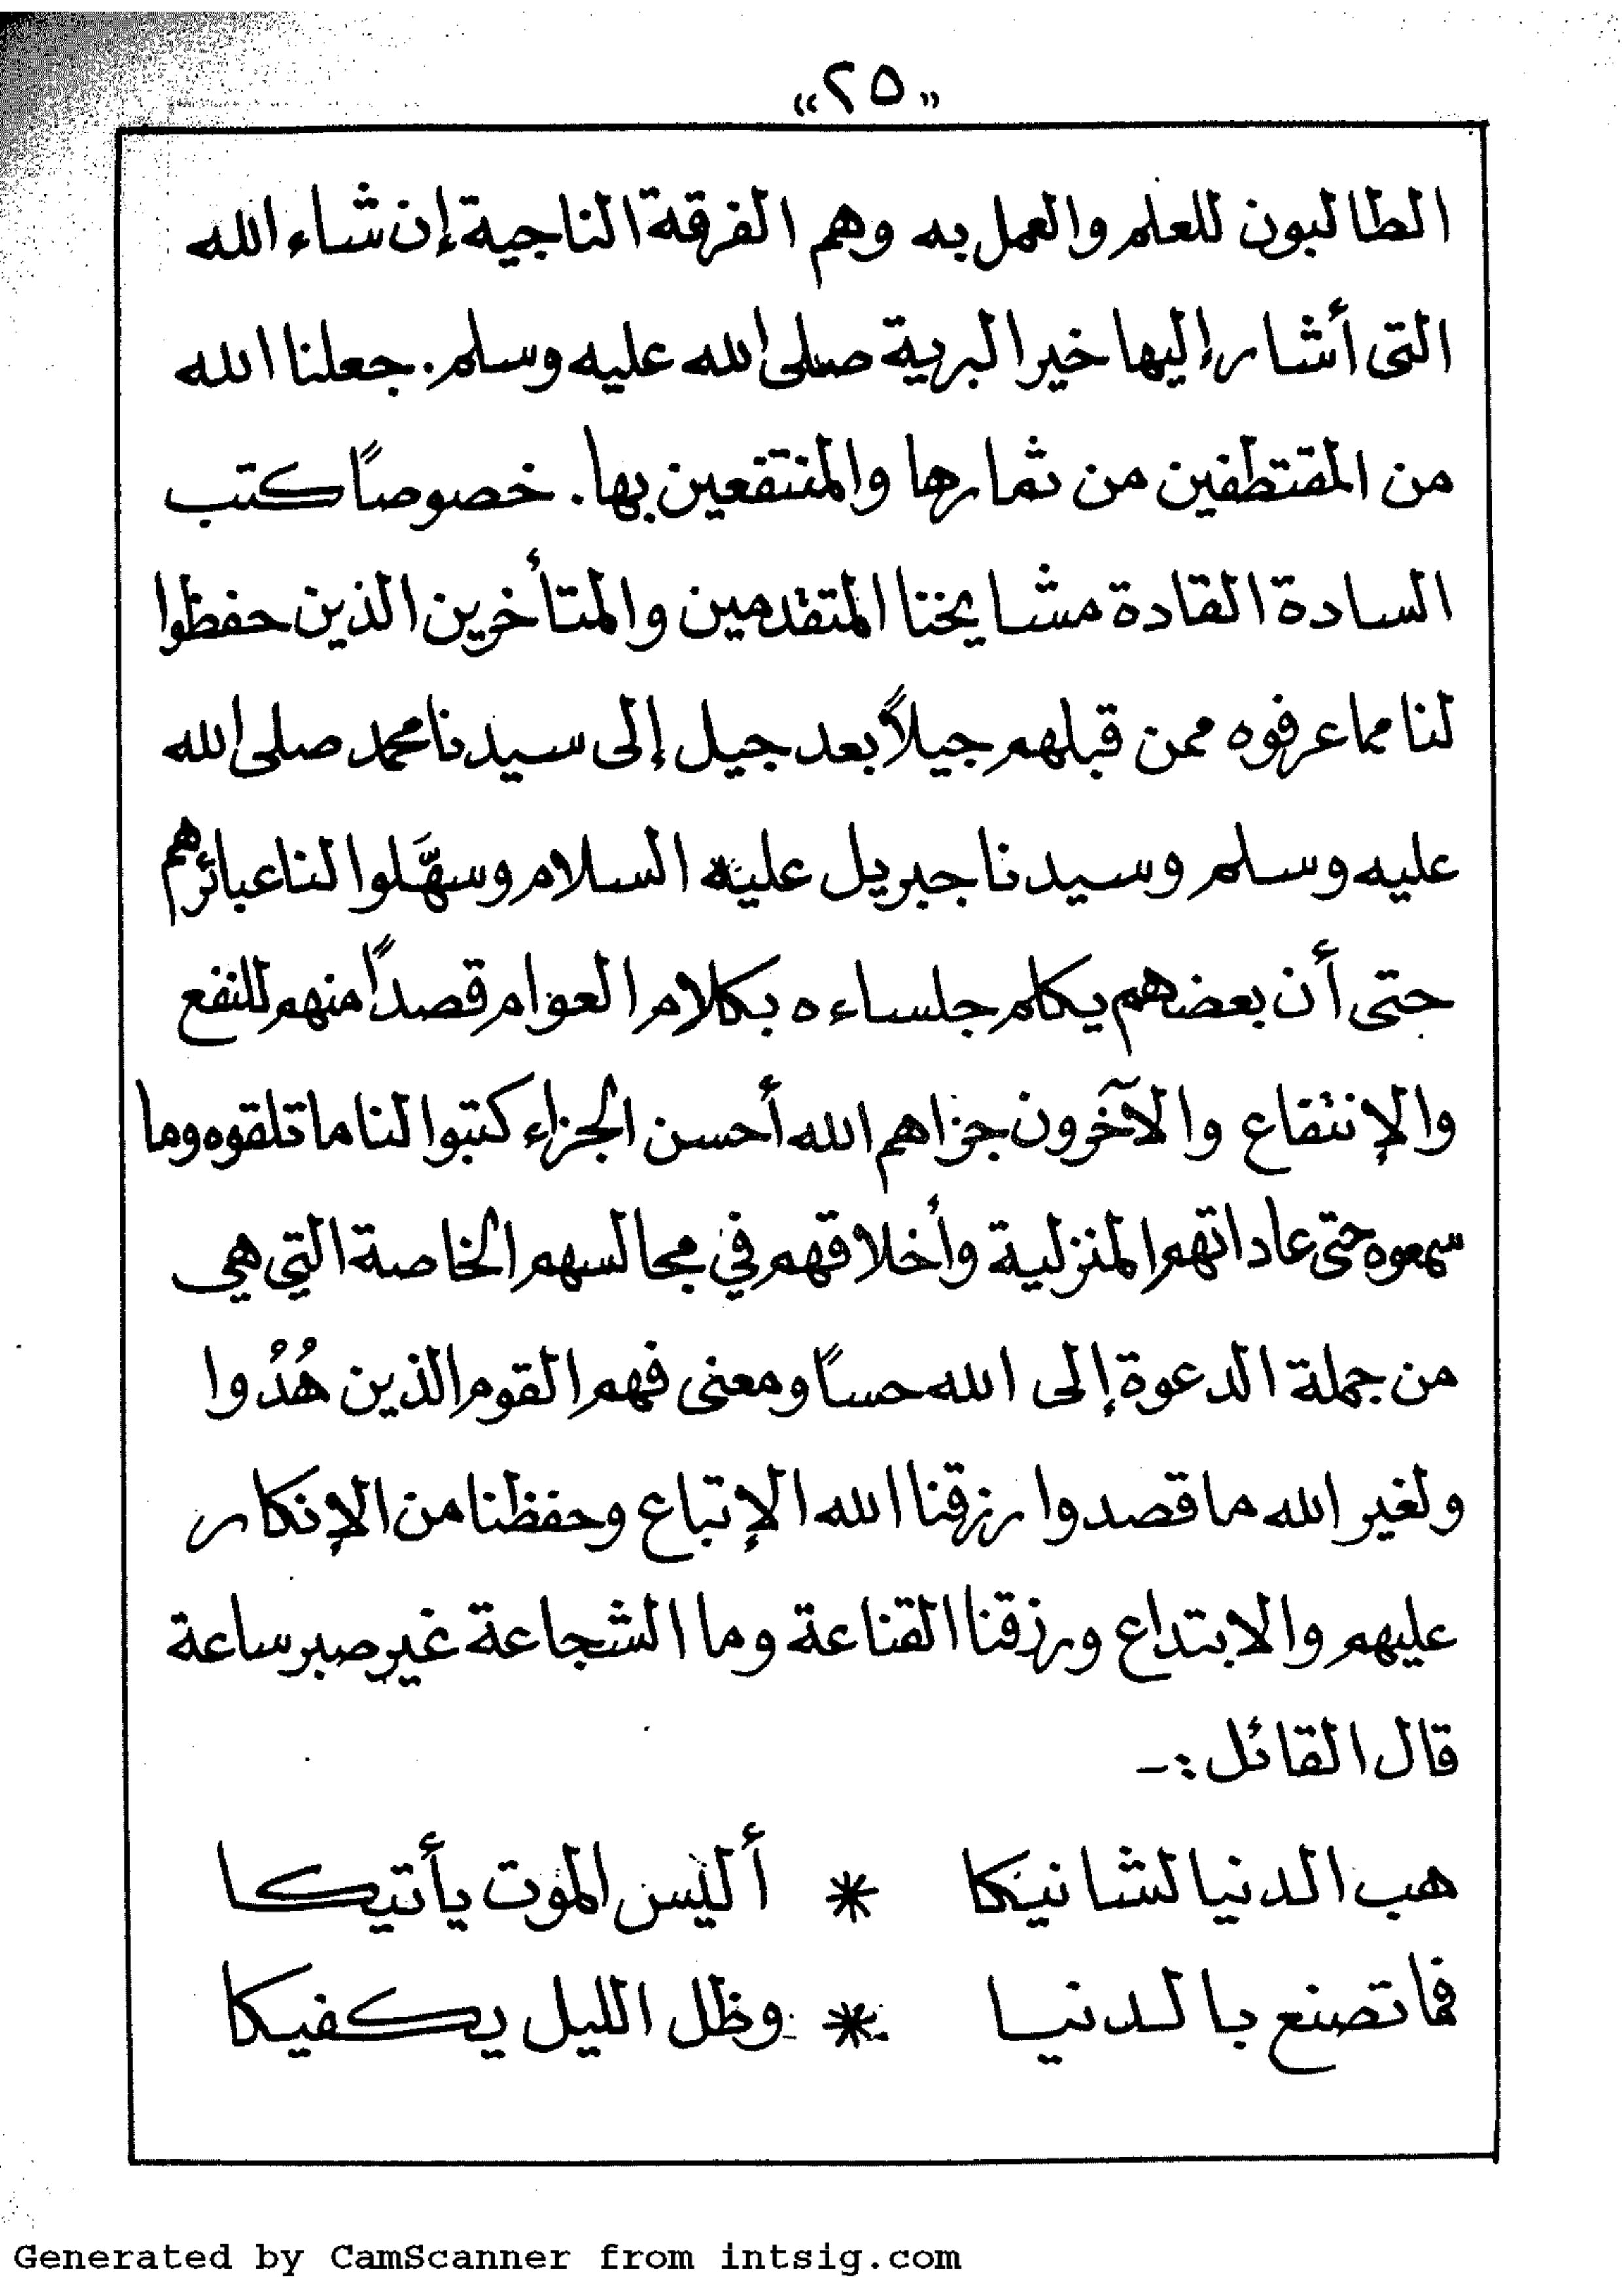 «٢٥»
الطالبون للعلم والعمل به وهم الفرقة الناجية إن شاء الله
التى أشار إليها خير البرية صلى الله عليه وسلم. جعلنا الله
من المقتطفين من ثمارها والمنتقعين بها. خصوصاً كتب
السادة القادة مشايخنا المتقدمين والمتأخرين الذين حفظوا
لنا مما عرفوه ممن قبلهم جيلاً بعد جيل إلى سيدنا محمد صلى الله
عليه وسلم وسيدنا جبريل عليه السلام وسهَّلوا لنا عبائرهم
حتى أن بعضهم يكلم جلساءه بكلام العوام قصداً منهم للنفع
والإنتقاع والآخرون جزاهم الله أحسن الجزاء كتبوا لنا ما تلقوه وما
سمعوه حتى عاداتهم المنزلية وأخلاقهم في مجالسهم الخاصة التي هي
من جملة الدعوة إلى الله حساً ومعنى فهم القوم الذين هُدُوا
ولغير الله ما قصدوا رزقنا الله الإتباع وحفظنا من الإنكار
عليهم والابتداع ورزقنا القناعة وما الشجاعة غير صبر ساعة
قال القائل :-
هب الدنيا لشانيكا * أليس الموت يأتيكا
فما تصنع بالدنيا * وظل الليل يكفيكا
Generated by CamScanner from intsig.com